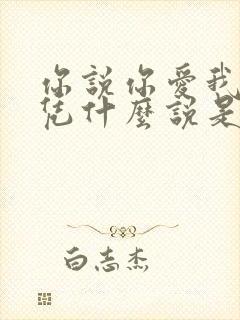 你說你愛我
凭什麼說是
白志杰